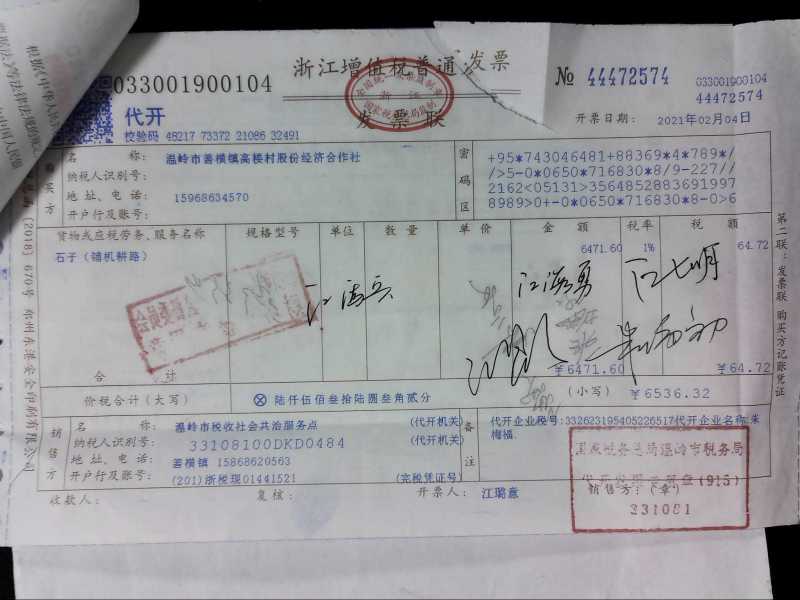 033001900104
浙江增值税普通发票
№ 44472574
033001900104
44472574
代开
发票联
校验码 48217 73372 21086 32491
开票日期： 2021年02月04日
购买方
名 称： 温岭市善横镇高楼村股份经济合作社
纳税人识别号：
地址、电话： 15968634570
开户行及账号：
密码区
+95*743046481+88369*4*789*/
/>5-0*0650*716830*8/9-227//
2162<05131>3564852883691997
8989>0+-0*0650*716830*8-0>6
货物或应税劳务、服务名称 规格型号 单位 数量 单价 金额 税率 税额
石子（铺机耕路） 6471.60 1% 64.72
合计 ￥6471.60 ￥64.72
价税合计（大写） ⊗ 陆仟伍佰叁拾陆圆叁角贰分 （小写） ￥6536.32
销售方
名 称： 温岭市税收社会共治服务点 (代开机关)
纳税人识别号： 33108100DKD0484 (代开机关)
地址、电话： 善横镇 15868620563
开户行及账号： (201)浙税现01441521 (完税凭证号)
备注
代开企业税号:332623195405226517代开企业名称:朱
梅福
收款人： 复核： 开票人： 江璐意 销售方：（章）
国家税务总局温岭市税务局
231081
第二联：发票联 购买方记账凭证